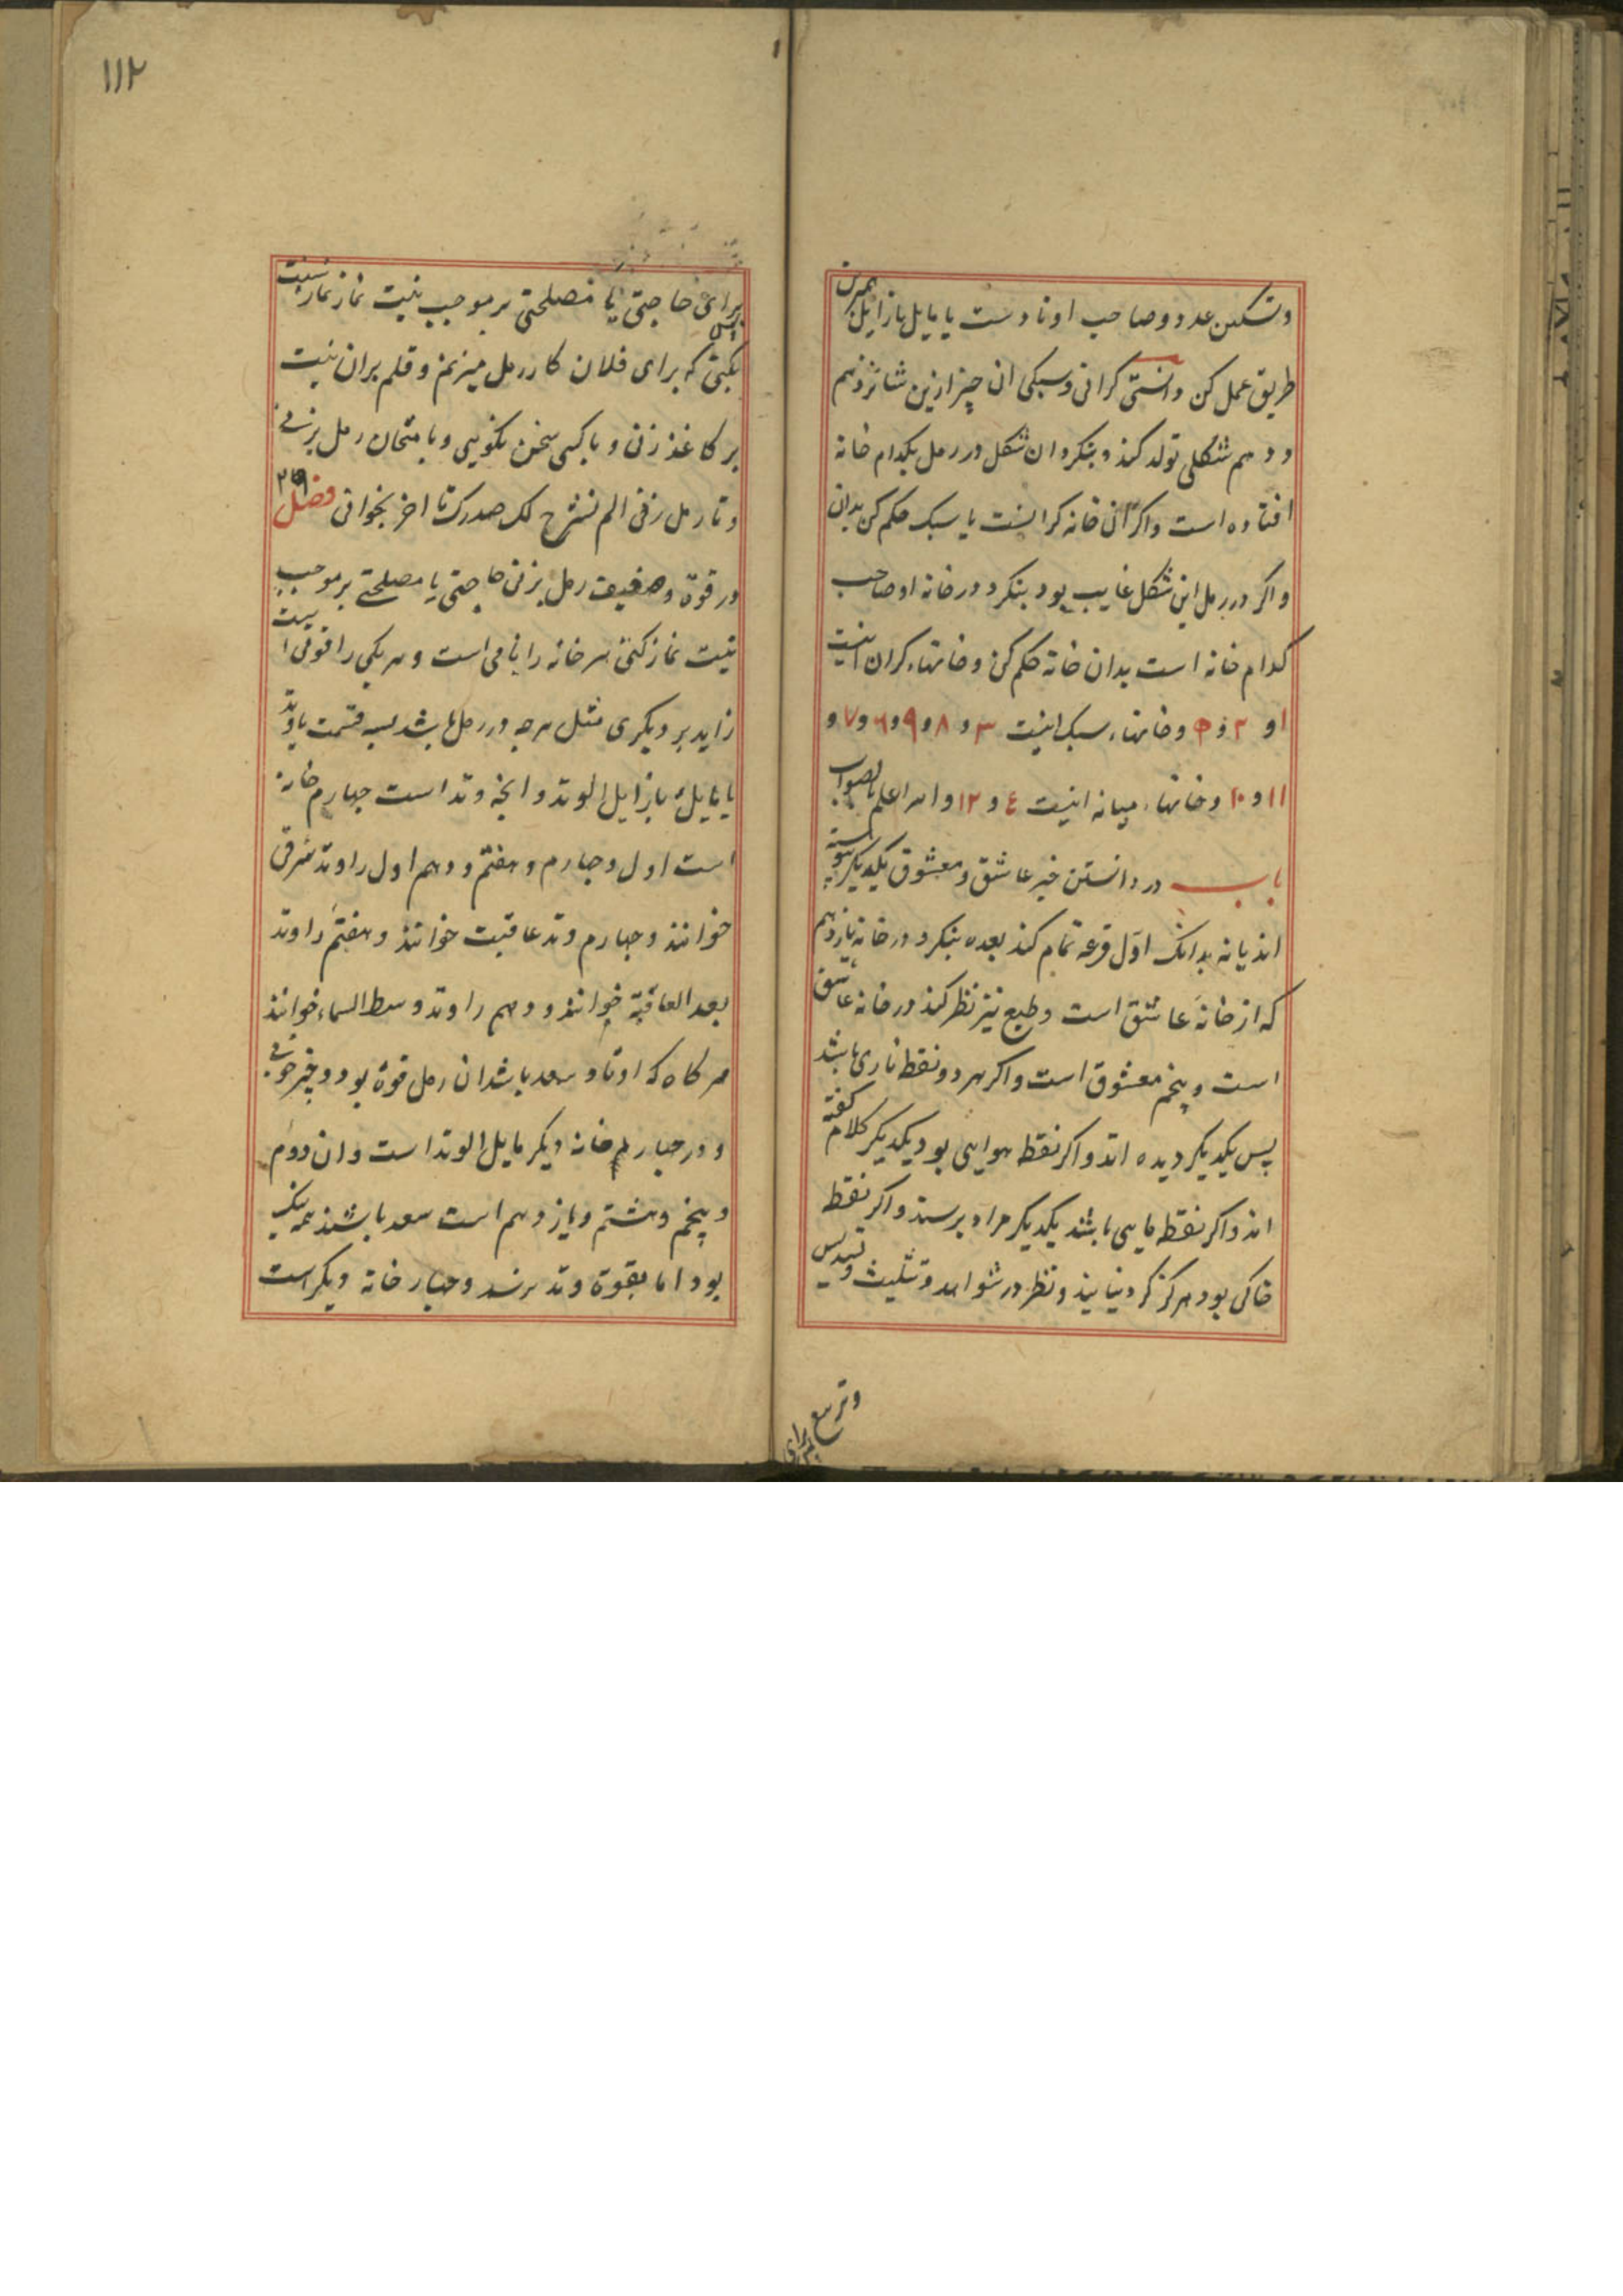 وتسکین عدد و صاحب اوتادست یا مایل یا زایل بهمین
طریق عمل کن دانستن کرانی وسبکی ان چیز ازین شانزدهم
ودهم شکلی تولد کند وبنکرد ان شکل در رمل بکدام خانه
افتاده است واکر آن خانه کرانست یا سبک حکم کن بدان
واکر در رمل این شکل غایب بود بنکرد در خانه او صاحب
کدام خانه است بدان خانه حکم کن وخانهاء کران اینست
۱ و ۲ و ۵ وخانهاء سبک اینست ۳ و ۸ و ۹ و ٦ و ۷ و
۱۱ و ۱۰ وخانهاء میانه اینست ٤ و ۱۲ والله اعلم بالصواب
باب در دانستن خبر عاشق ومعشوق یکدیکر پیوسته
اند یا نه بدانک اول قرعه تمام کند بعده بنکرد در خانه یازدهم
که از خانهٔ عاشق است وطبع نیز نظر کند در خانه عاشق
است وپنجم معشوق است واکر هر دو نقط ناری باشد
پس یکدیکر دیده اند واکر نقط هوایی بود یکدیکر کلام کفته
اند واکر نقط مایی باشد یکدیکر مراد برسند واکر نقط
خاکی بود هرکز کرد نیایند ونظر در شواهد وتثلیث وتسدیس
وتربیع
برای
۱۱۲
برای حاجتی یا مصلحتی بر موجب نیت نماز نماز نیت پس
بکنی که برای فلان کار رمل میزنم وقلم بران نیت
بر کاغذ زنی وبا کسی سخن نکویی وبامتحان رمل بزنی
وتا رمل زنی الم نشرح لک صدرک تا اخر بخوانی فصل
در قوة وضعیف رمل بزنی حاجتی یا مصلحتی بر موجب
نیت نماز کنی هر خانه را نامی است وهر یکی را قوتی است
زاید بر دیکری مثل هرچه در رمل باشد بسه قسمت یا وتد
یا مایل یا زایل الوتد وانچه وتد است چهارم خانه
است اول وچهارم وهفتم ودهم اول را وتد شرقی
خوانند وچهارم وتد عاقبت خوانند وهفتم را وتد
بعد العاقبة خوانند ودهم را وتد وسط السماء خوانند
هرکاه که اوتاد سعد باشد ان رمل قوة بود وخبر خوبی
ودر چهارم خانه دیکر مایل الوتد است وان دوم
وپنجم وهشتم ویازدهم است سعد باشند همه نیک
بود اما بقوة وتد نرسد وچهار خانه دیکر است